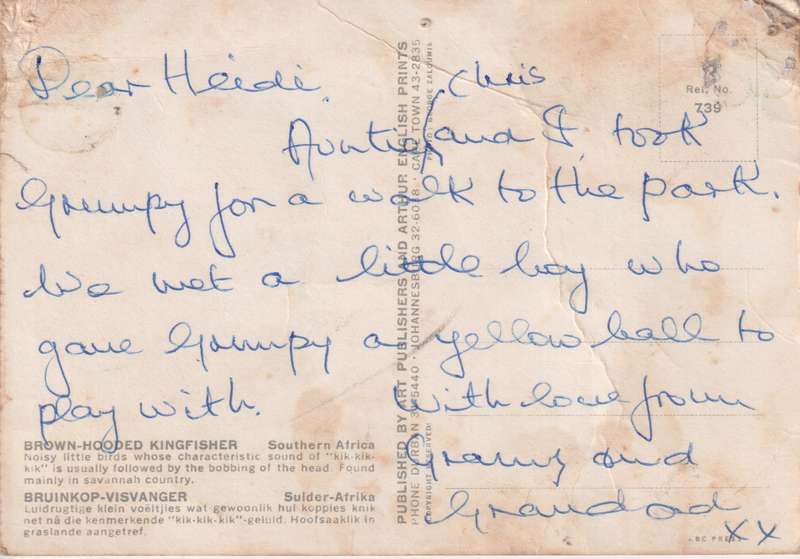 Dear Heidi,
Chris
Auntie and I took
Grumpy for a walk to the park.
We met a little boy who
gave Grumpy a yellow ball to
play with. With love from
Granny and
Grandad
xx
Ref. No.
739
BROWN-HOODED KINGFISHER Southern Africa
Noisy little birds whose characteristic sound of "kik-kik-
kik" is usually followed by the bobbing of the head. Found
mainly in savannah country.
BRUINKOP-VISVANGER Suider-Afrika
Luidrugtige klein voëltjies wat gewoonlik hul koppies knik
net nå die kenmerkende "kik-kik-kik"-geluid. Hoofsaaklik in
graslande aangetref.
PUBLISHED BY ART PUBLISHERS AND ARTHUR ENGLISH PRINTS
PHONE DURBAN JOHANNESBURG CAPE TOWN 43-2835
COPYRIGHT RESERVED
PHOTO: GEORGE ZALOUMIS